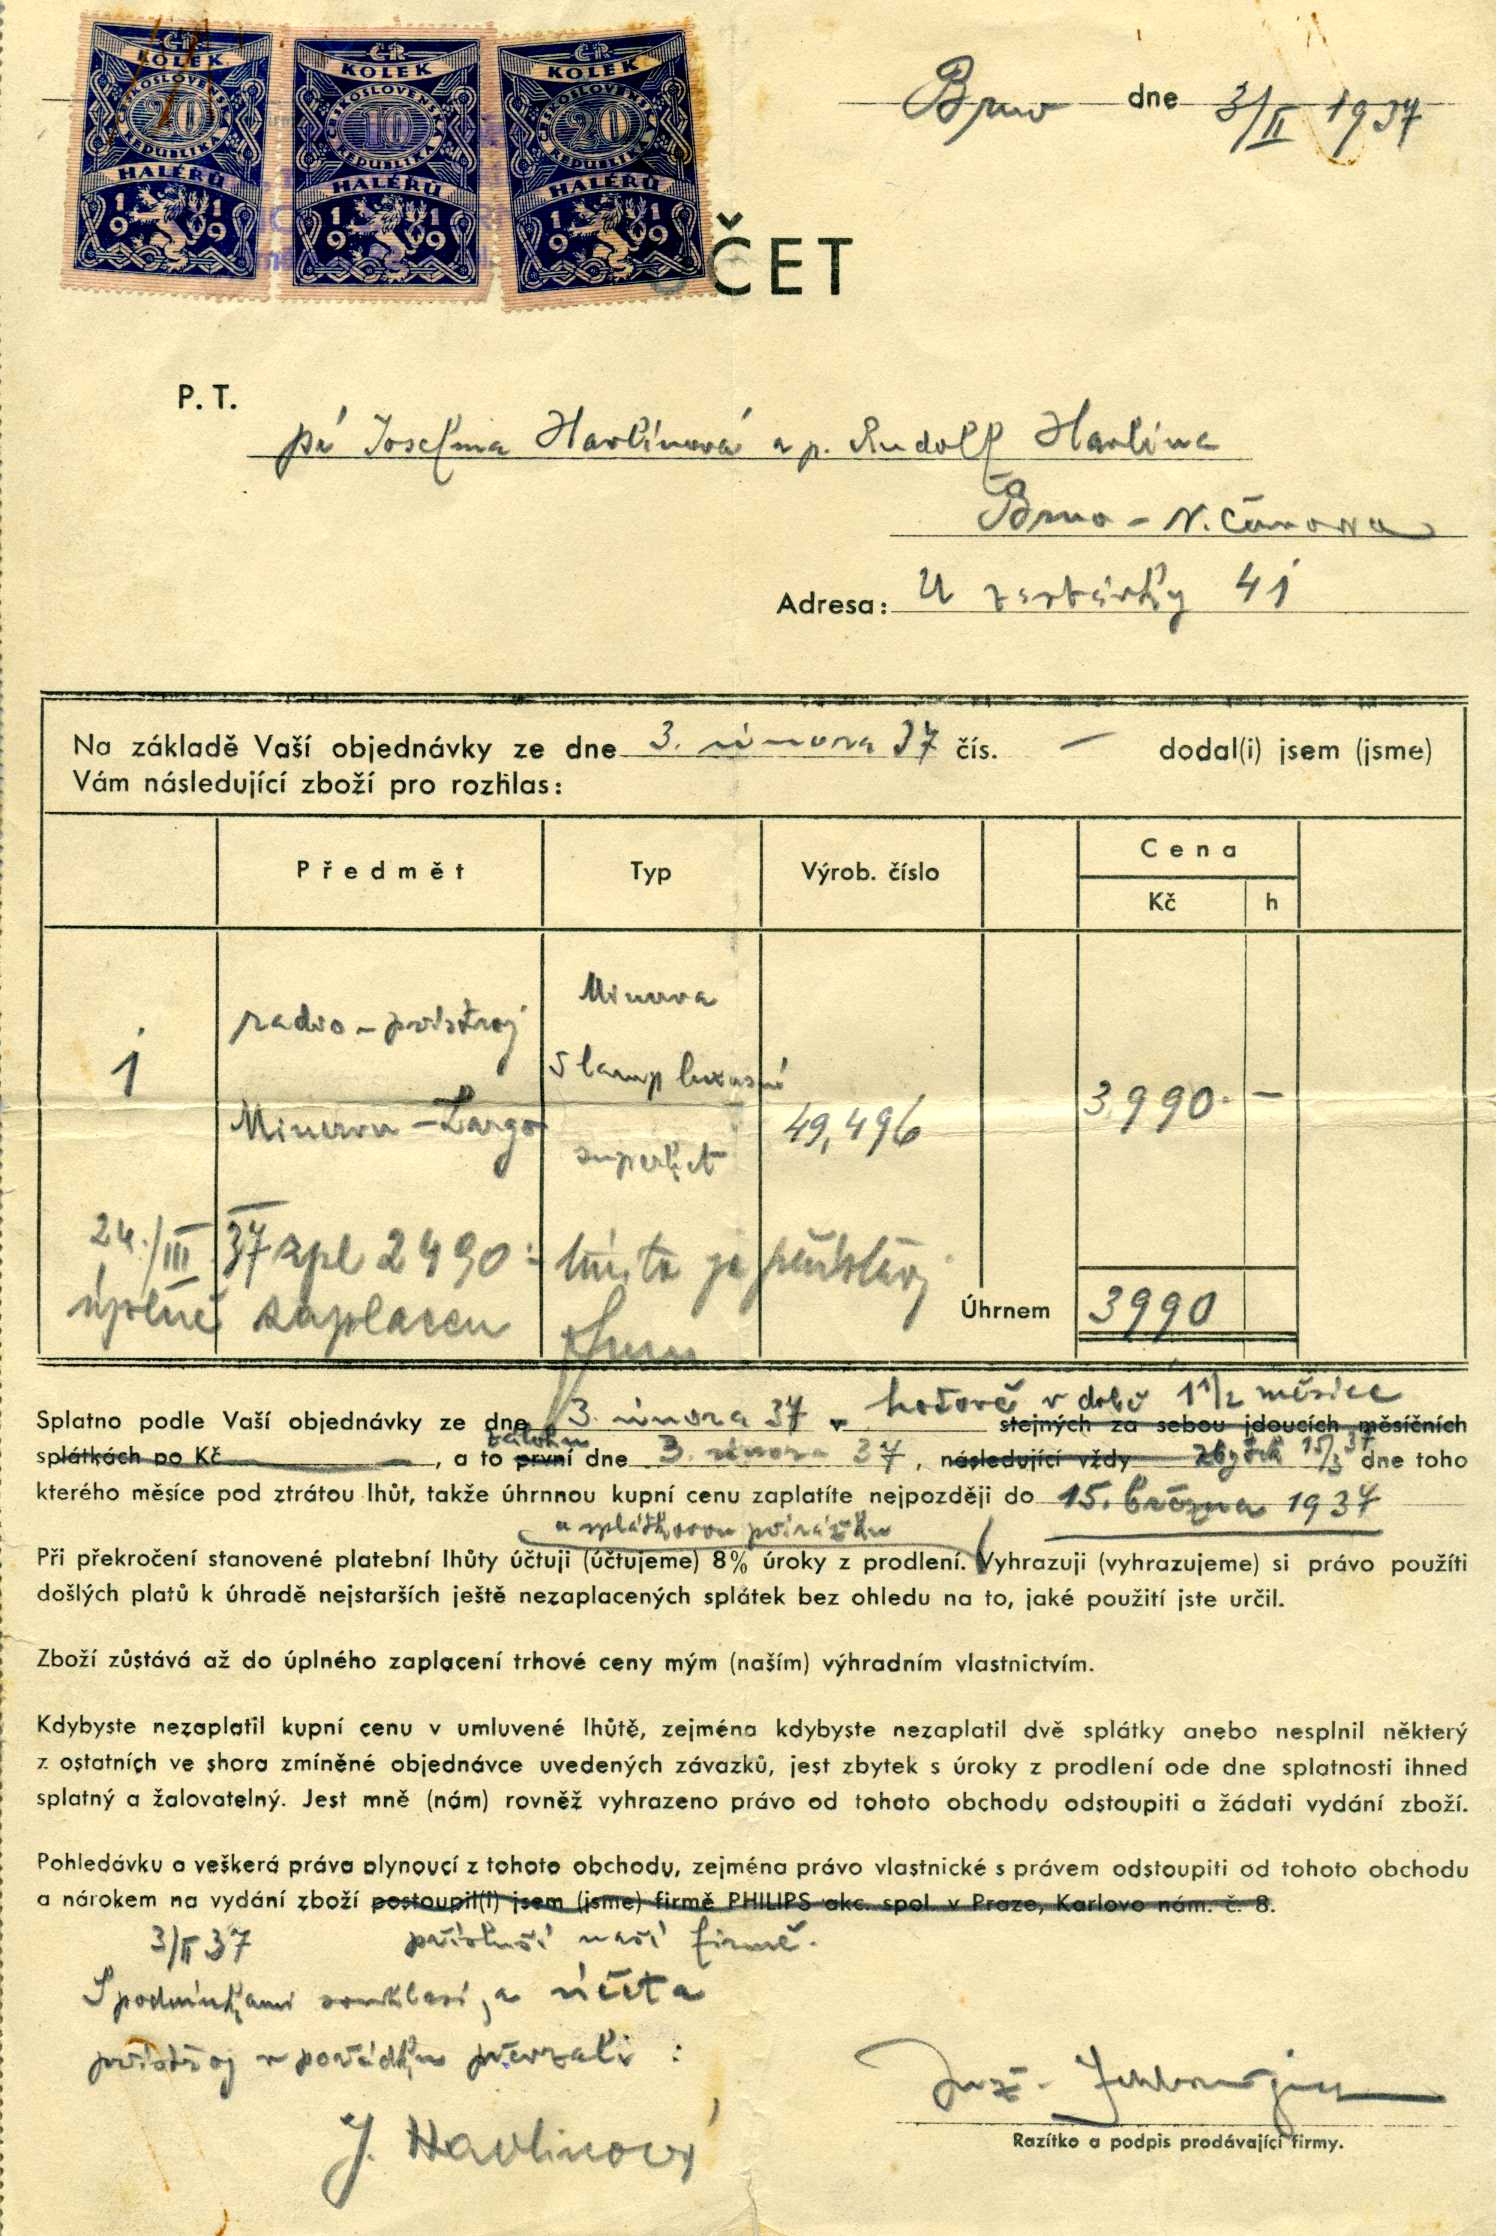 ČR ČR ČR
KOLEK KOLEK KOLEK
ČESKOSLOVENSKÁ ČESKOSLOVENSKÁ ČESKOSLOVENSKÁ
20 10 20
REPUBLIKA REPUBLIKA REPUBLIKA
HALÉŘŮ HALÉŘŮ HALÉŘŮ
1919 1919 1919
Brno dne 3/II 1937
ÚČET
P. T.
pí Josefina Havlínová a p. Rudolf Havlína
Brno - N. Černova
Adresa: U 41
Na základě Vaší objednávky ze dne 3. února 37 čís. — dodal(i) jsem (jsme)
Vám následující zboží pro rozhlas:
Předmět Typ Výrob. číslo Cena
Kč h
1 radio-přístroj Minerva
5 lamp luxusní
Minerva - Largo superhet 49,496 3.990.- —
24./III 37 zpl 2490 :- tímto je přístroj
úplně zaplacen Úhrnem 3990
Splatno podle Vaší objednávky ze dne 3. února 37 v hotově v době 1 1/2 měsíce stejných za sebou jdoucích měsíčních
splátkách po Kč —, a to první záloha dne 3. února 37, následující vždy zbytek 15/3 37 dne toho
kterého měsíce pod ztrátou lhůt, takže úhrnnou kupní cenu zaplatíte nejpozději do 15. března 1937
a splátkovou přirážku
Při překročení stanovené platební lhůty účtuji (účtujeme) 8% úroky z prodlení. Vyhrazuji (vyhrazujeme) si právo použíti
došlých platů k úhradě nejstarších ještě nezaplacených splátek bez ohledu na to, jaké použití jste určil.
Zboží zůstává až do úplného zaplacení trhové ceny mým (naším) výhradním vlastnictvím.
Kdybyste nezaplatil kupní cenu v umluvené lhůtě, zejména kdybyste nezaplatil dvě splátky anebo nesplnil některý
z ostatních ve shora zmíněné objednávce uvedených závazků, jest zbytek s úroky z prodlení ode dne splatnosti ihned
splatný a žalovatelný. Jest mně (nám) rovněž vyhrazeno právo od tohoto obchodu odstoupiti a žádati vydání zboží.
Pohledávku a veškerá práva plynoucí z tohoto obchodu, zejména právo vlastnické s právem odstoupiti od tohoto obchodu
a nárokem na vydání zboží postoupil(i) jsem (jsme) firmě PHILIPS akc. spol. v Praze, Karlovo nám. č. 8.
3/II 37 přísluší naší firmě.
S podmínkami souhlasí, a účet a
přístroj v pořádku převzali :
J. Havlinová
Razítko a podpis prodávající firmy.